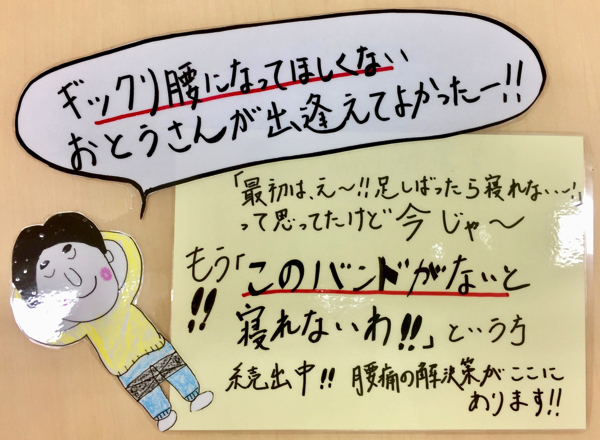 ギックリ腰になってほしくない
おとうさんが出逢えてよかったー!!
「最初は、え〜!!足しばったら寝れない〜!」
って思ってたけど今じゃ〜
もう「このバンドがないと
!!
寝れないわ!!」というち
続出中!! 腰痛の解決策がここに
あります!!